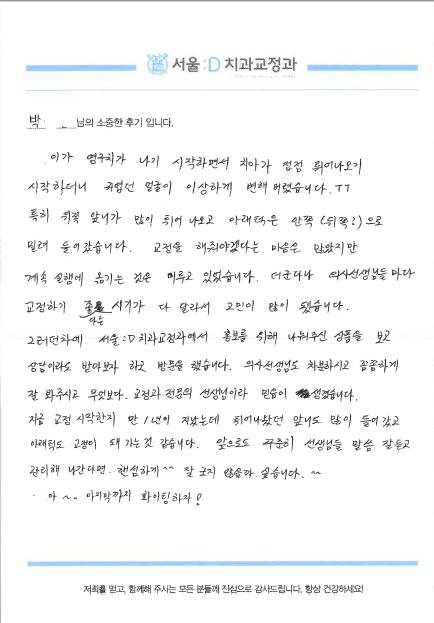 서울:D 치과교정과
박 님의 소중한 후기 입니다.
이가 영구치가 나기 시작하면서 치아가 점점 튀어나오기
시작하더니 귀엽던 얼굴이 이상하게 변해 버렸습니다. ㅜㅜ
특히 위쪽 앞니가 많이 튀어 나오고 아래턱은 안쪽 (뒤쪽?)으로
밀려 들어갔습니다. 교정을 해줘야겠다는 마음은 많았지만
계속 실행에 옮기는 것은 미루고 있었습니다. 더군다나 의사선생님들 마다
교정하기 좋다는 시기가 다 달라서 고민이 많이 됐습니다.
그러던차에 서울:D치과교정과에서 홍보를 위해 나눠주신 상품을 보고
상담이라도 받아보자 하고 방문을 했습니다. 의사선생님도 차분하시고 꼼꼼하게
잘 봐주시고 무엇보다. 교정과 전문의 선생님이라 믿음이 생겼습니다.
지금 교정 시작한지 만 1년이 지났는데 튀어나왔던 앞니도 많이 들어갔고
아래턱도 교정이 돼 가는것 같습니다. 앞으로도 꾸준히 선생님들 말씀 잘듣고
관리해 나간다면. 핸섬하게^^ 잘 크지 않을까 싶습니다. ^^
아~~ 마지막까지 화이팅하자!
저희를 믿고, 함께해 주시는 모든 분들께 진심으로 감사드립니다. 항상 건강하세요!